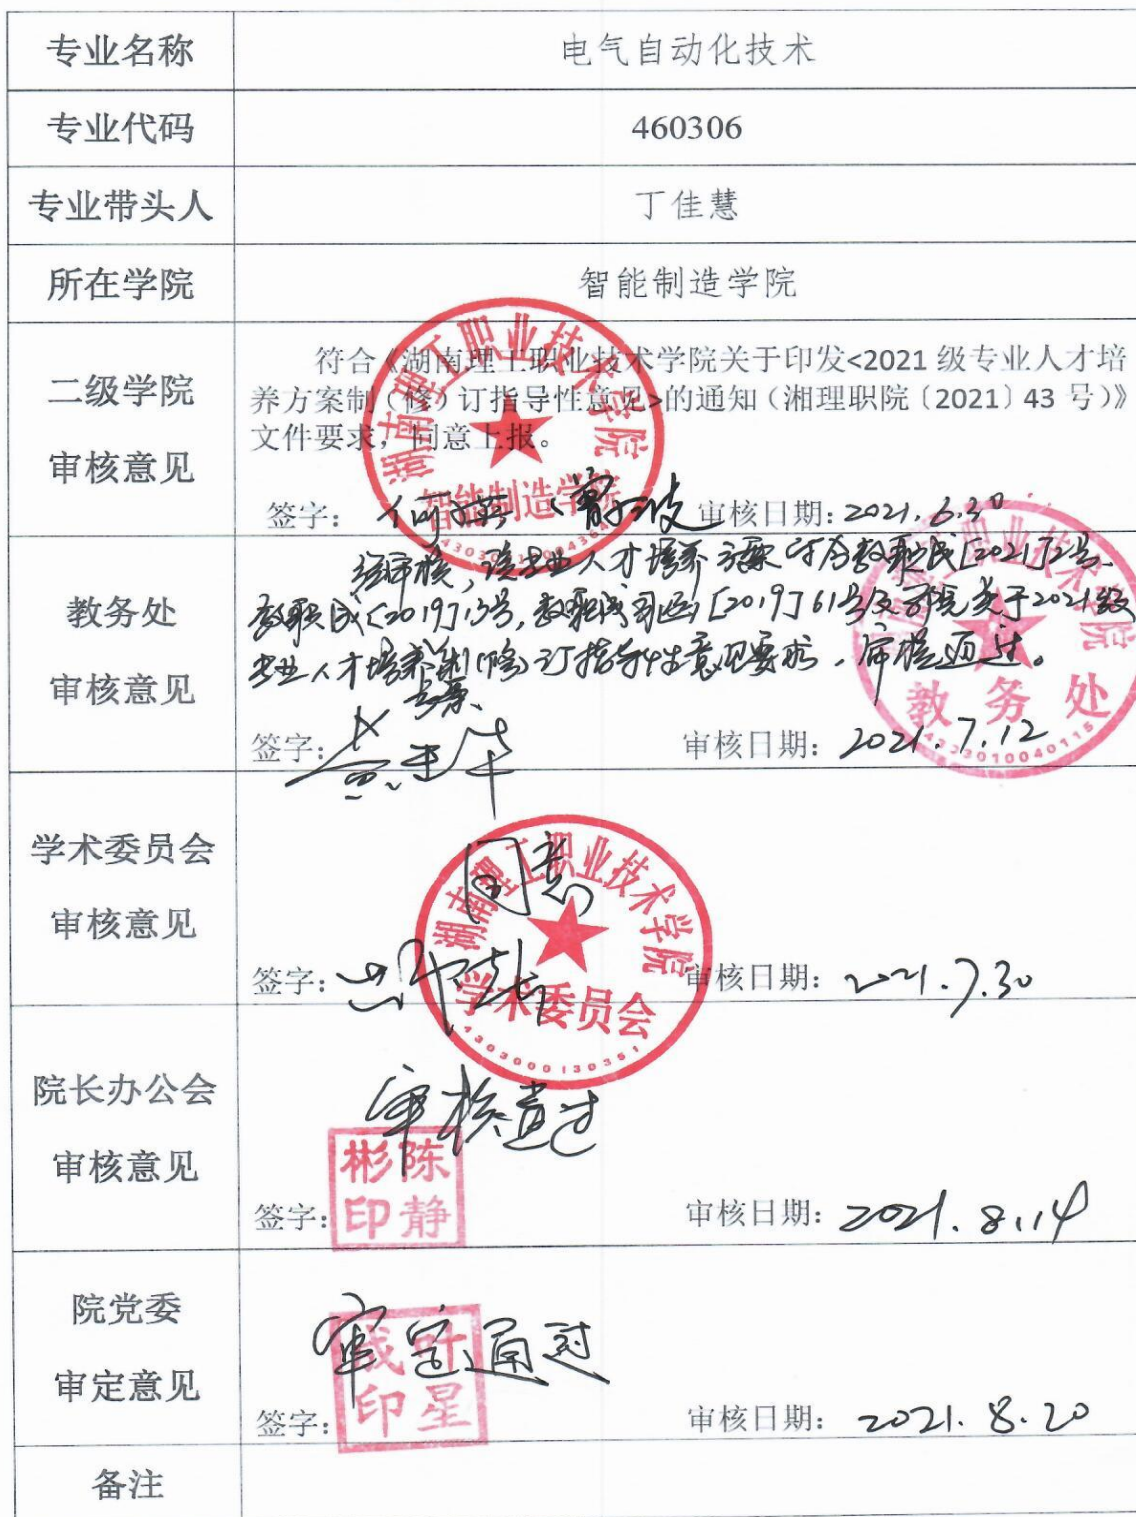 专业名称 电气自动化技术
专业代码 460306
专业带头人 丁佳慧
所在学院 智能制造学院
二级学院
审核意见
符合《湖南理工职业技术学院关于印发<2021 级专业人才培
养方案制（修）订指导性意见>的通知（湘理职院〔2021〕43 号）》
文件要求，同意上报。
湖南理工职业技术学院
智能制造学院
签字： 审核日期：2021.6.30
教务处
审核意见
经审核，该专业人才培养方案符合教职成[2021]2号、
教职成[2019]13号，教职成司函[2019]61号及学院关于2021级
专业人才培养方案制(修)订指导性意见要求，审核通过。
教务处
签字： 审核日期：2021.7.12
学术委员会
审核意见
同意
湖南理工职业技术学院
学术委员会
4303000130351
签字： 审核日期：2021.7.30
院长办公会
审核意见
审核通过
陈静彬印
签字： 审核日期：2021.8.14
院党委
审定意见
审定通过
叶星成印
签字： 审核日期：2021.8.20
备注